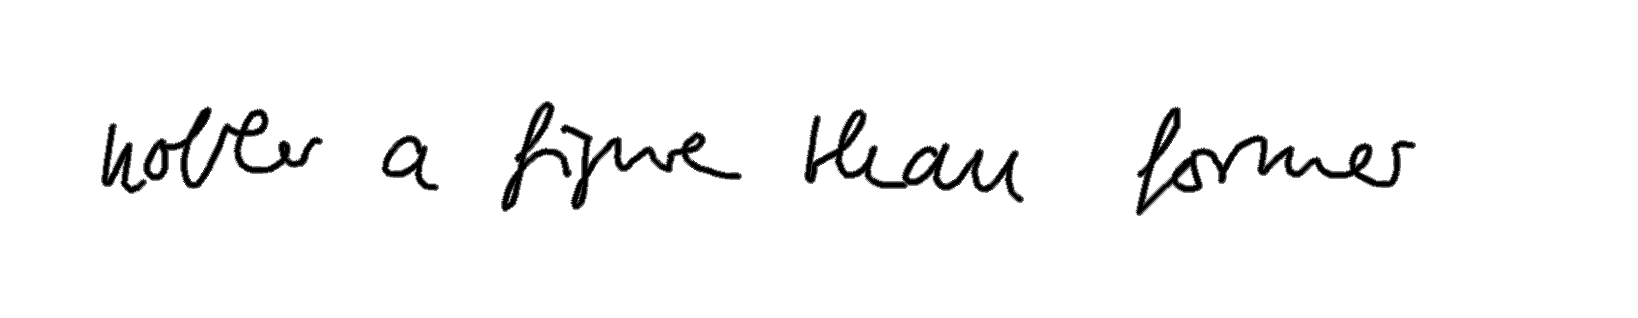 nobler a figure than former